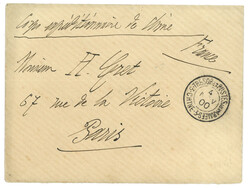 Corps expéditionnaire de Chine
France
Monsieur H. Gret
67 rue de la Victoire
Paris